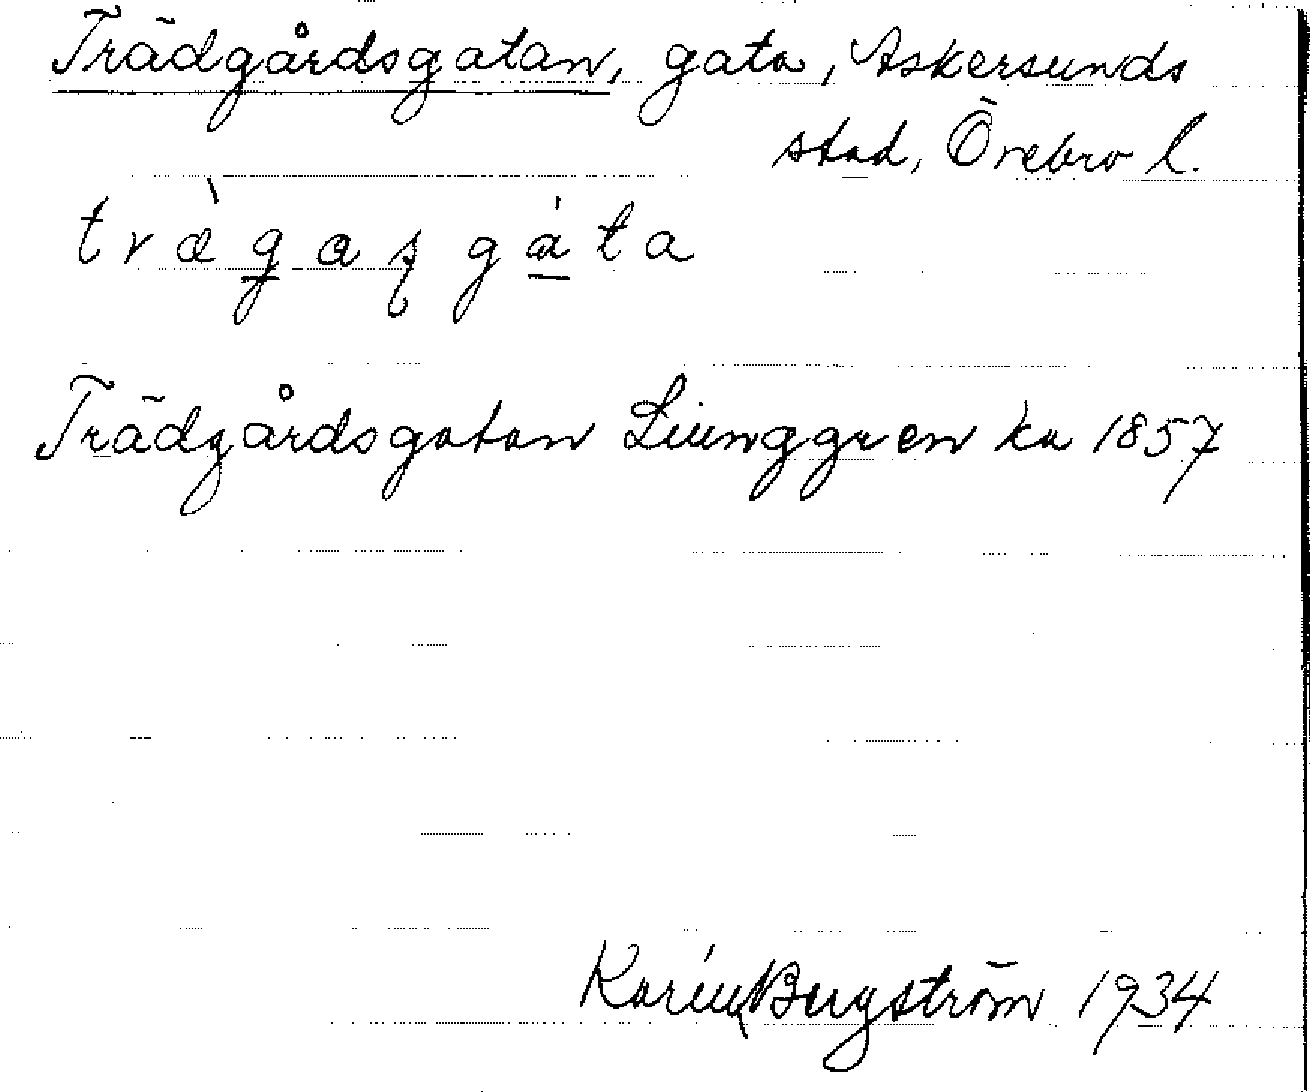 Trädgårdsgatan, gata, Askersunds
stad, Örebro l.
träg̲aʂ gá̲ta
Trädgårdsgatan Liunggren ka 1857
Karin Bergström 1934